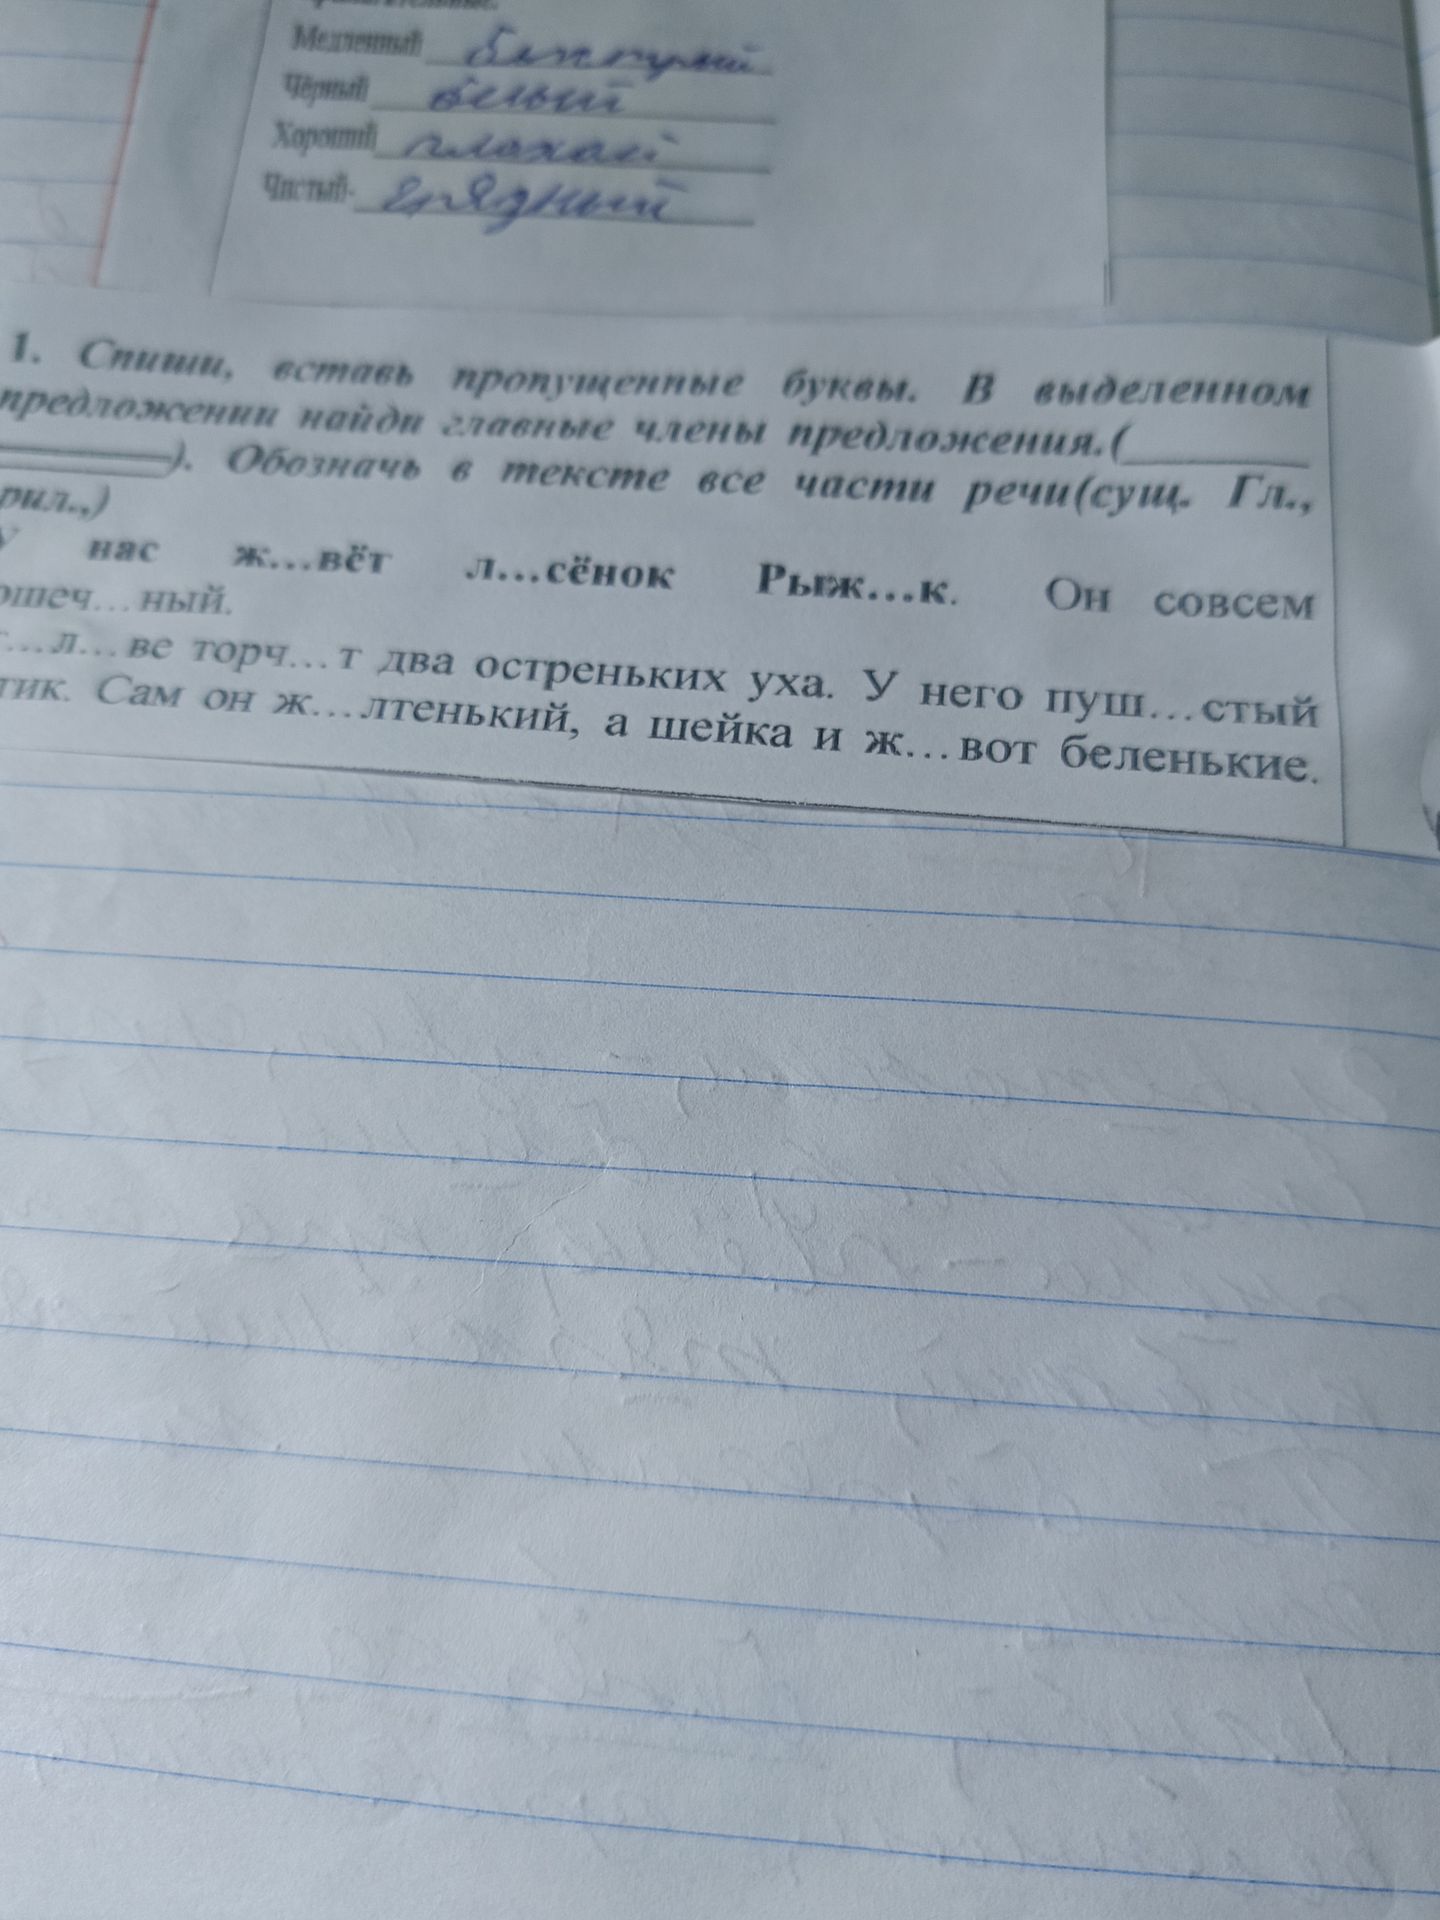 Медленный
Чёрный белый
Хороший плохой
Чистый- грязный
1. Спиши, вставь пропущенные буквы. В выделенном
предложении найди главные члены предложения.(________
________). Обозначь в тексте все части речи(сущ. Гл.,
рил.,)
У нас ж...вёт л...сёнок Рыж...к. Он совсем
ошеч...ный.
г...л...ве торч...т два остреньких уха. У него пуш...стый
тик. Сам он ж...лтенький, а шейка и ж...вот беленькие.